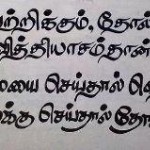 ற்றிக்கும், தோல்
வித்தியாசம்தான்
யை செய்தால் வெ
த்த செய்தால் தோ